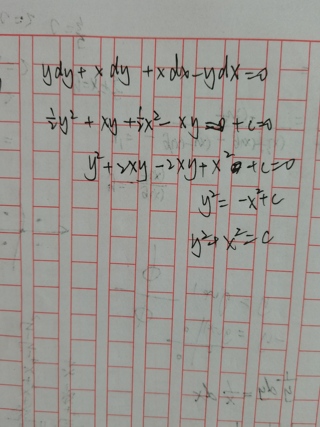 ydy + xdy + xdx - ydx = 0
½y² + xy + ½x² - xy + c = 0
y² + 2xy - 2xy + x² + c = 0
y² = -x² + c
y² + x² = c